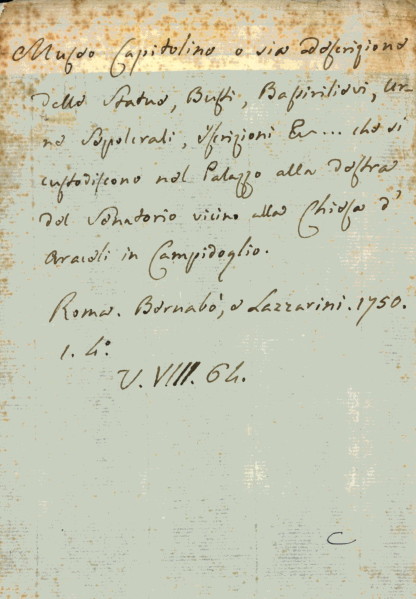 Museo Capitolino o sia descrizione
delle Statue, Busti, Bassirilievi, Ur-
ne Sepolcrali, iscrizioni Ec... che si
custodiscono nel Palazzo alla destra
del Senatorio vicino alla Chiesa d'
Araceli in Campidoglio.
Roma. Bernabò, e Lazzarini. 1750.
1. 4°.
V. VIII. 64.
C